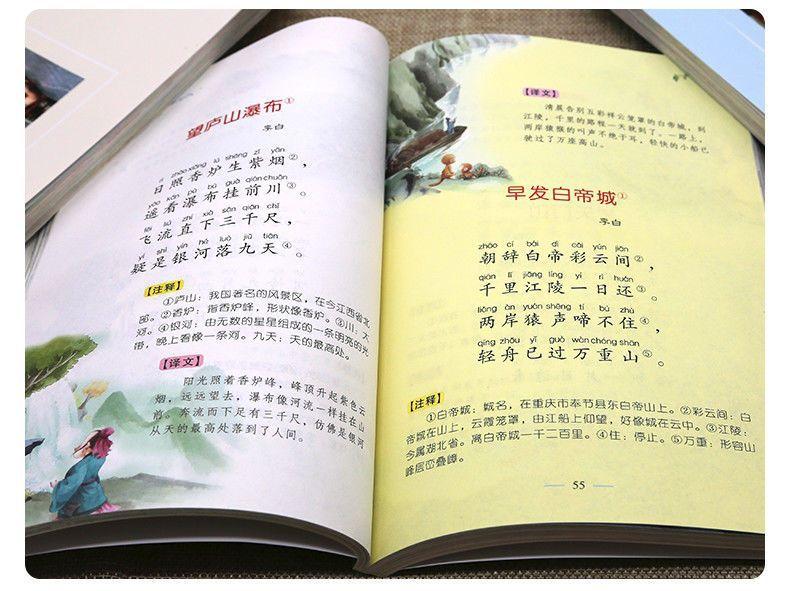 望庐山瀑布①
李白
rì zhào xiāng lú shēng zǐ yān
日照香炉生紫烟②，
yáo kàn pù bù guà qián chuān
遥看瀑布挂前川③。
fēi liú zhí xià sān qiān chǐ
飞流直下三千尺，
yí shì yín hé luò jiǔ tiān
疑是银河落九天④。
【注释】
①庐山：我国著名的风景区，在今江西省北
部。②香炉：指香炉峰，形状像香炉。③川：大
河。④银河：由无数的星星组成的一条明亮的光
带，晚上看像一条河。九天：天的最高处。
【译文】
阳光照着香炉峰，峰顶升起紫色云
烟，远远望去，瀑布像河流一样挂在山
前。奔流而下足有三千尺，仿佛是银河
从天的最高处落到了人间。
【译文】
清晨告别五彩祥云笼罩的白帝城，到
江陵，千里的路程一天就到了。一路上，
两岸猿猴的叫声不绝于耳，轻快的小船已
驶过了万座高山。
早发白帝城①
李白
zhāo cí bái dì cǎi yún jiān
朝辞白帝彩云间②，
qiān lǐ jiāng líng yí rì huán
千里江陵一日还③。
liǎng àn yuán shēng tí bú zhù
两岸猿声啼不住④，
qīng zhōu yǐ guò wàn chóng shān
轻舟已过万重山⑤。
【注释】
①白帝城：城名，在重庆市奉节县东白帝山上。②彩云间：白
帝城在山上，云霞笼罩，由江船上仰望，好像城在云中。③江陵：
今属湖北省。离白帝城一千二百里。④住：停止。⑤万重：形容山
峰层峦叠嶂。
55